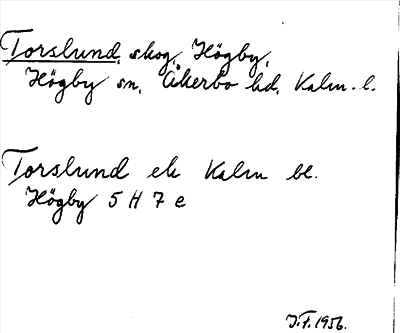 Torslund, skog, Högby,
Högby sn, Åkerbo hd, Kalm. l.
Torslund ek Kalm bl.
Högby 5 H 7 e
J.F. 1956.